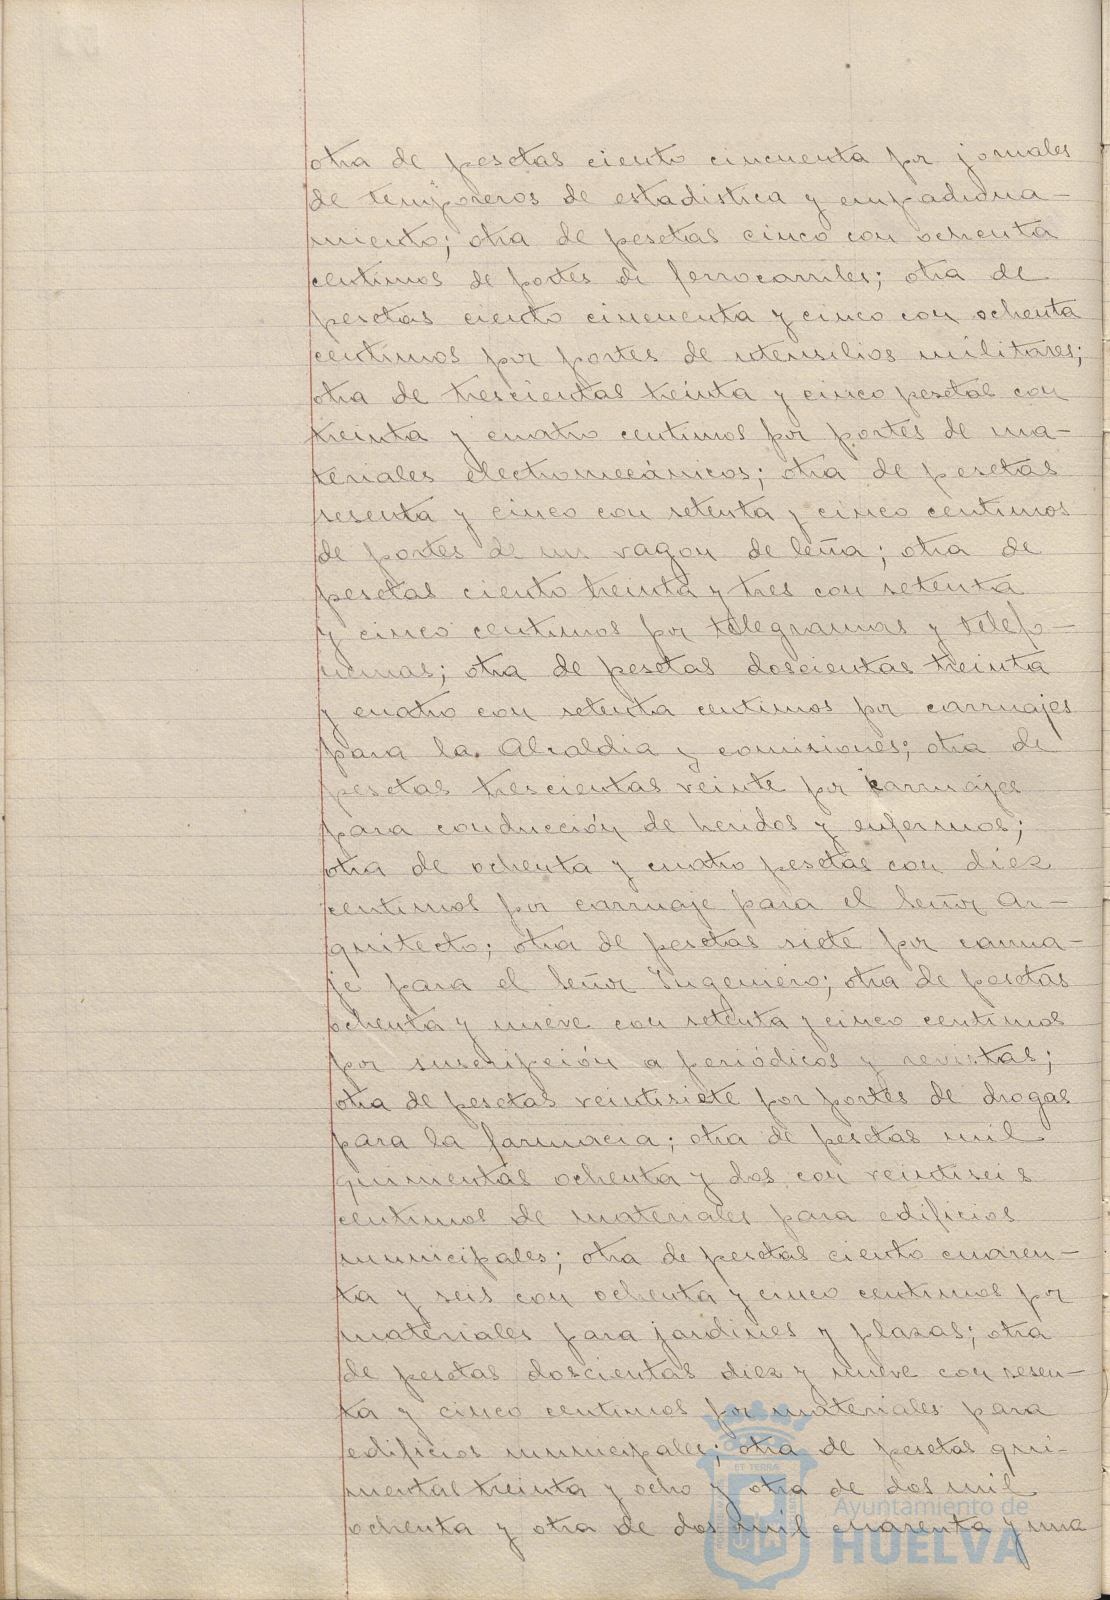 otra de pesetas ciento cincuenta por jornales
de temporeros de estadistica y empadrona-
miento; otra de pesetas cinco con ochenta
centimos de portes de ferrocarriles; otra de
pesetas ciento cincuenta y cinco con ochenta
centimos por portes de utensilios militares;
otra de trescientas treinta y cinco pesetas con
treinta y cuatro centimos por portes de ma-
teriales electromecánicos; otra de pesetas
sesenta y cinco con setenta y cinco centimos
de portes de un vagon de leña; otra de
pesetas ciento treinta y tres con setenta
y cinco centimos por telegramas y telefo-
nemas; otra de pesetas doscientas treinta
y cuatro con setenta centimos por carruajes
para la Alcaldia y comisiones; otra de
pesetas trescientas veinte por carruajes
para conducción de heridos y enfermos;
otra de ochenta y cuatro pesetas con diez
centimos por carruaje para el Señor Ar-
quitecto; otra de pesetas siete por carrua-
je para el Señor Ingeniero; otra de pesetas
ochenta y nueve con setenta y cinco centimos
por suscripción a periódicos y revistas;
otra de pesetas veintisiete por portes de drogas
para la farmacia; otra de pesetas mil
quinientas ochenta y dos con veintiseis
centimos de materiales para edificios
municipales; otra de pesetas ciento cuaren-
ta y seis con ochenta y cinco centimos por
materiales para jardines y plazas; otra
de pesetas doscientas diez y nueve con sesen-
ta y cinco centimos por materiales para
edificios municipales; otra de pesetas qui-
nientas treinta y ocho y otra de dos mil
ochenta y otra de dos mil cuarenta y una
ET TERRÆ
Ayuntamiento de
HUELVA